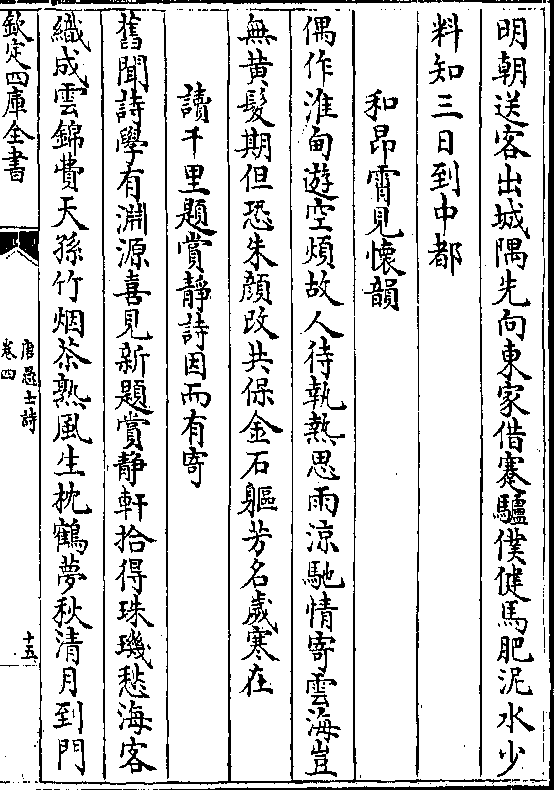 明朝送客出城隅先向東家借蹇驢僕健馬肥泥水少
料知三日到中都
和昂霄見懷韻
偶作淮甸遊空煩故人待執熱思雨涼馳情寄雲海豈
無黄髮期但恐朱顔改共保金石軀芳名歲寒在
讀千里題賞靜詩因而有寄
舊聞詩學有淵源喜見新題賞靜軒拾得珠璣愁海客
織成雲錦費天孫竹烟茶熟風生枕鶴夢秋清月到門
欽定四庫全書
唐愚士詩
卷四
十五